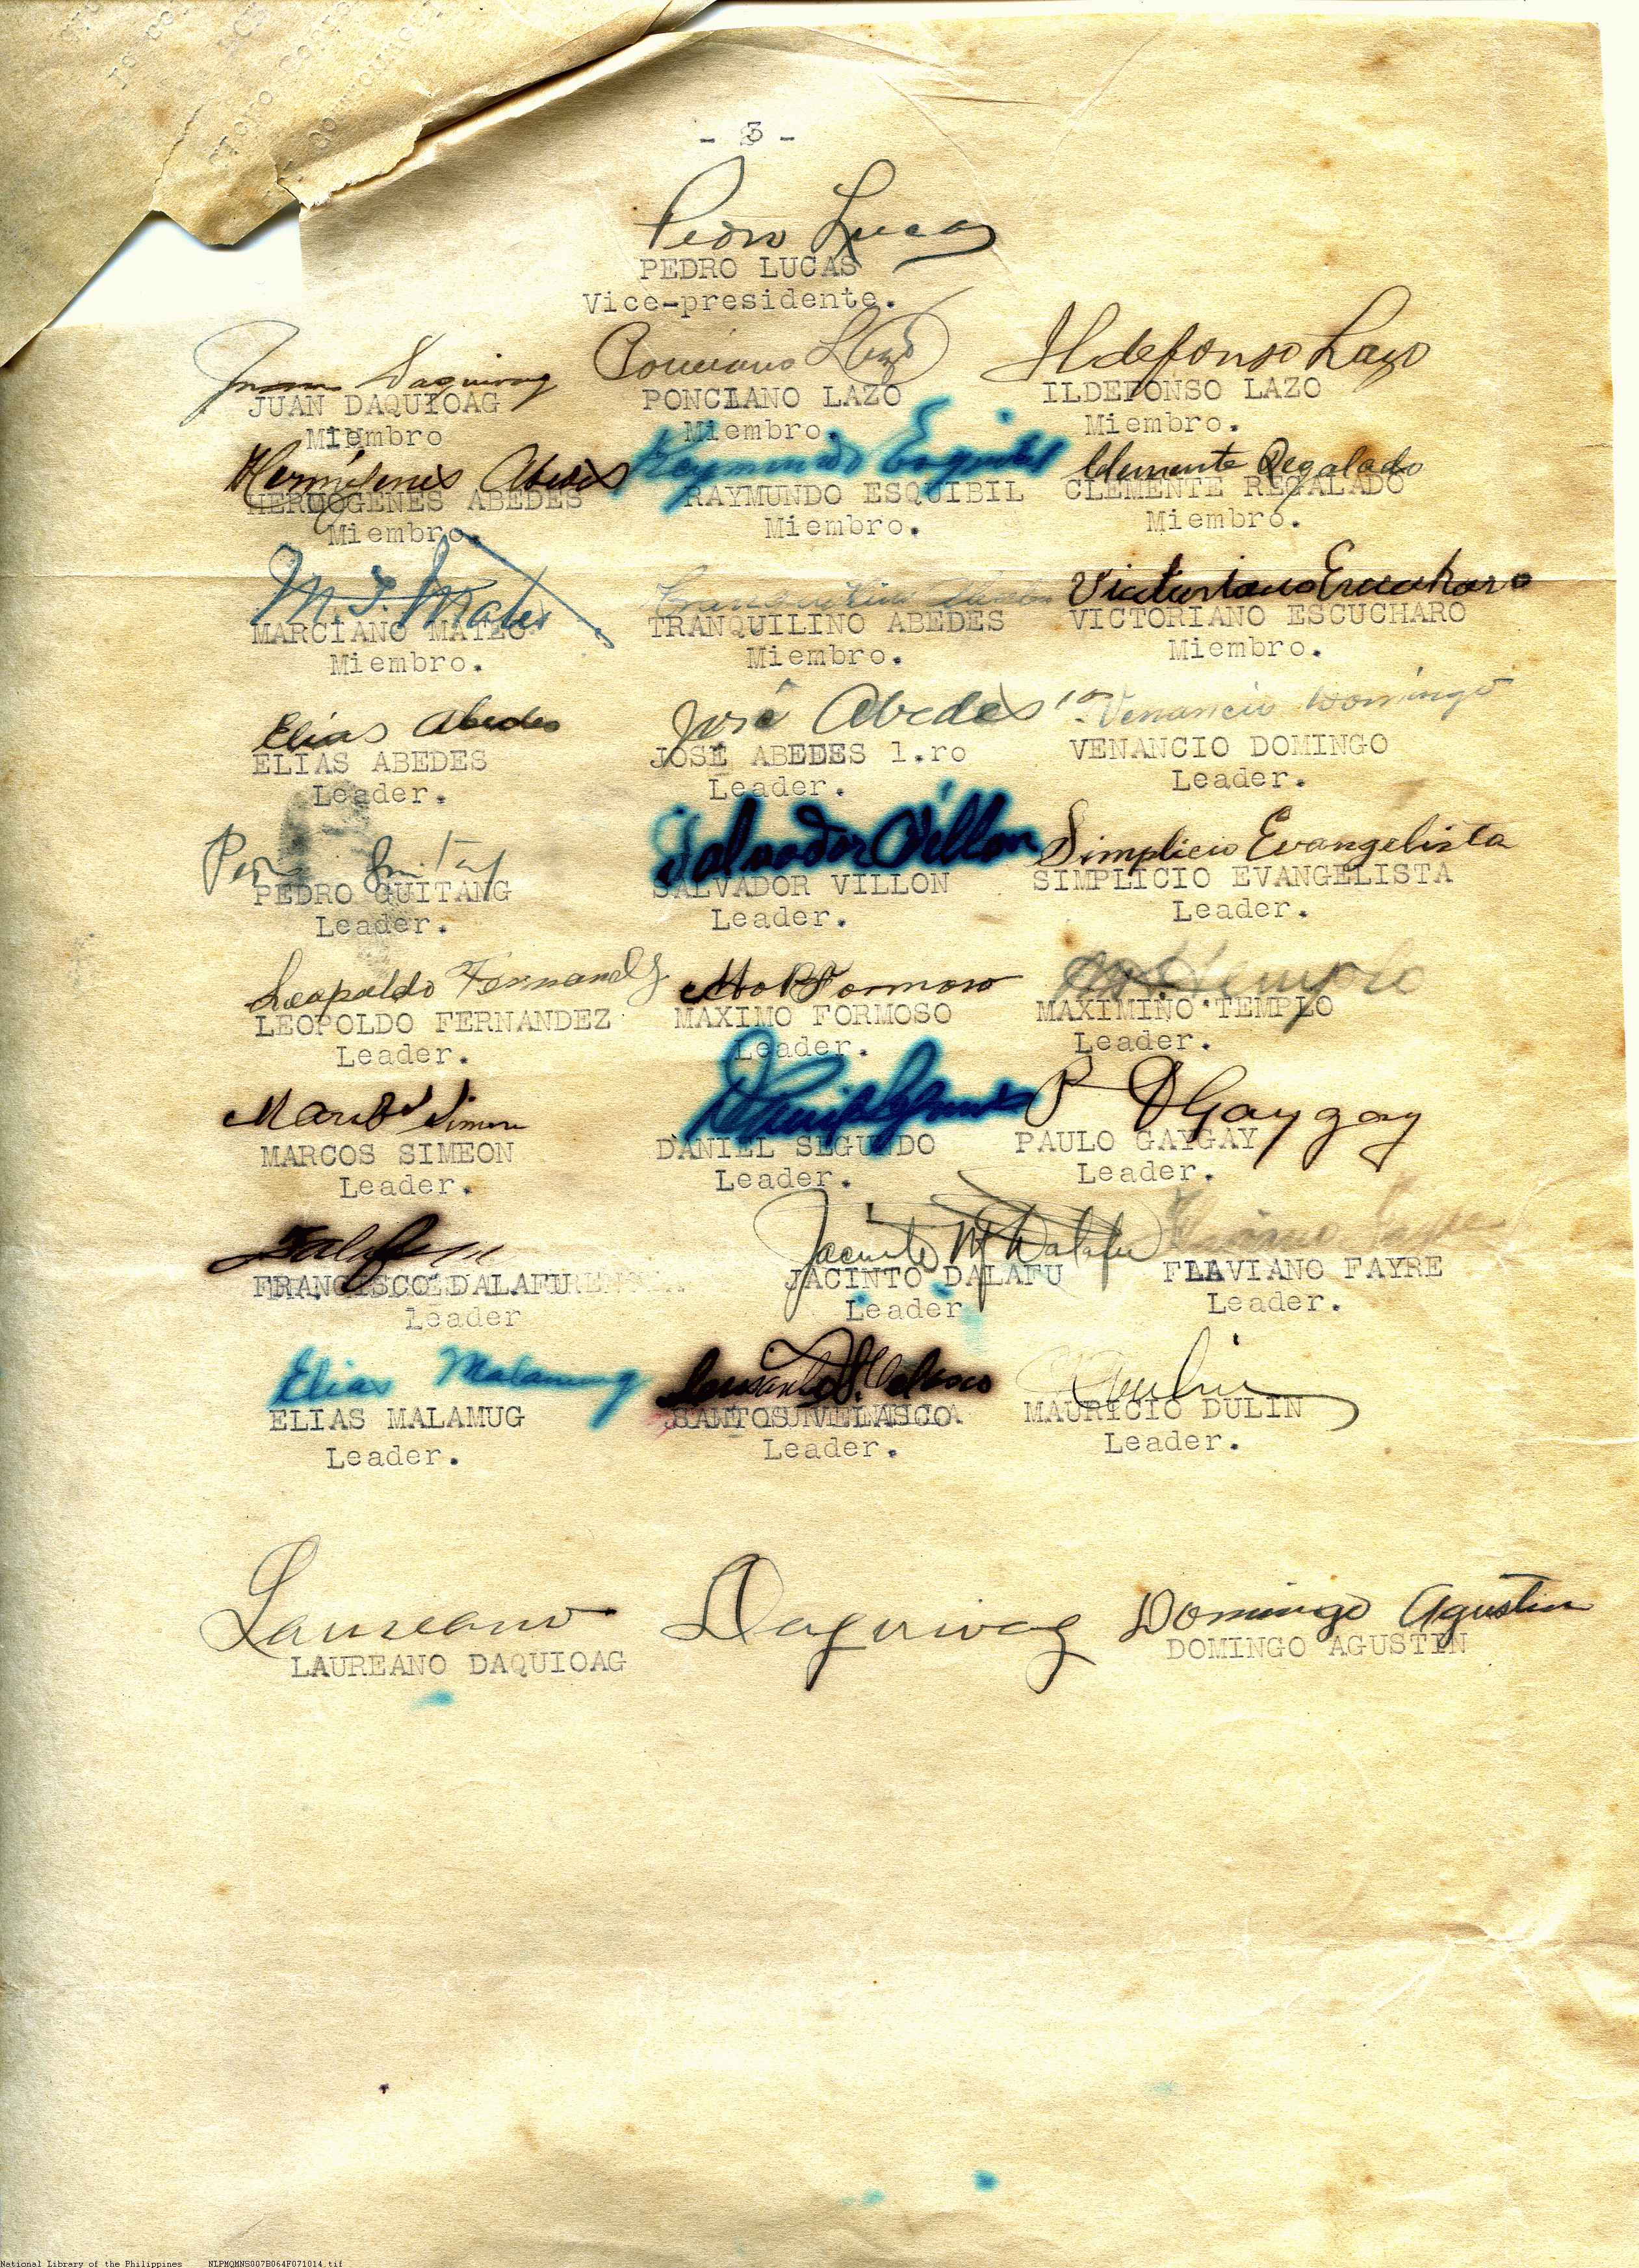 - 3 -
Pedro Lucas
PEDRO LUCAS
Vice-presidente.
Juan Daquioag Ponciano Lazo Ildefonso Lazo
JUAN DAQUIOAG PONCIANO LAZO ILDEFONSO LAZO
Miembro Miembro. Miembro.
Hermógenes Abedes Raymundo Esquibil Clemente Regalado
HERMOGENES ABEDES RAYMUNDO ESQUIBIL CLEMENTE REGALADO
Miembro. Miembro. Miembro.
Tranquilino Abedes Victoriano Escucharo
MARCIANO MATEO TRANQUILINO ABEDES VICTORIANO ESCUCHARO
Miembro. Miembro. Miembro.
Elias Abedes José Abedes 1ro Venancio Domingo
ELIAS ABEDES JOSE ABEDES 1.ro VENANCIO DOMINGO
Leader. Leader. Leader.
Pedro Guitang Salvador Villon Simplicio Evangelista
PEDRO GUITANG SALVADOR VILLON SIMPLICIO EVANGELISTA
Leader. Leader. Leader.
Leopoldo Fernandez Formoso Templo
LEOPOLDO FERNANDEZ MAXIMO FORMOSO MAXIMINO TEMPLO
Leader. Leader. Leader.
Marcos Simeon P D Gaygay
MARCOS SIMEON DANIEL SEGUNDO PAULO GAYGAY
Leader. Leader. Leader.
Jacinto M Dalafu Flaviano Fayre
FRANCISCO DALAFU JACINTO DALAFU FLAVIANO FAYRE
Leader Leader Leader.
Elias Malamug Velasco Dulin
ELIAS MALAMUG SANTOS VELASCO MAURICIO DULIN
Leader. Leader. Leader.
Laureano Daquioag Domingo Agustin
LAUREANO DAQUIOAG DOMINGO AGUSTIN
National Library of the Philippines NLPMQMNS007B064F071014.tif